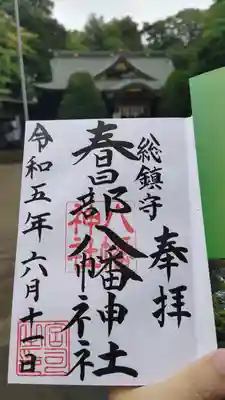 奉拝
総鎮守
春日部八幡神社
八幡神社
令和五年六月十一日